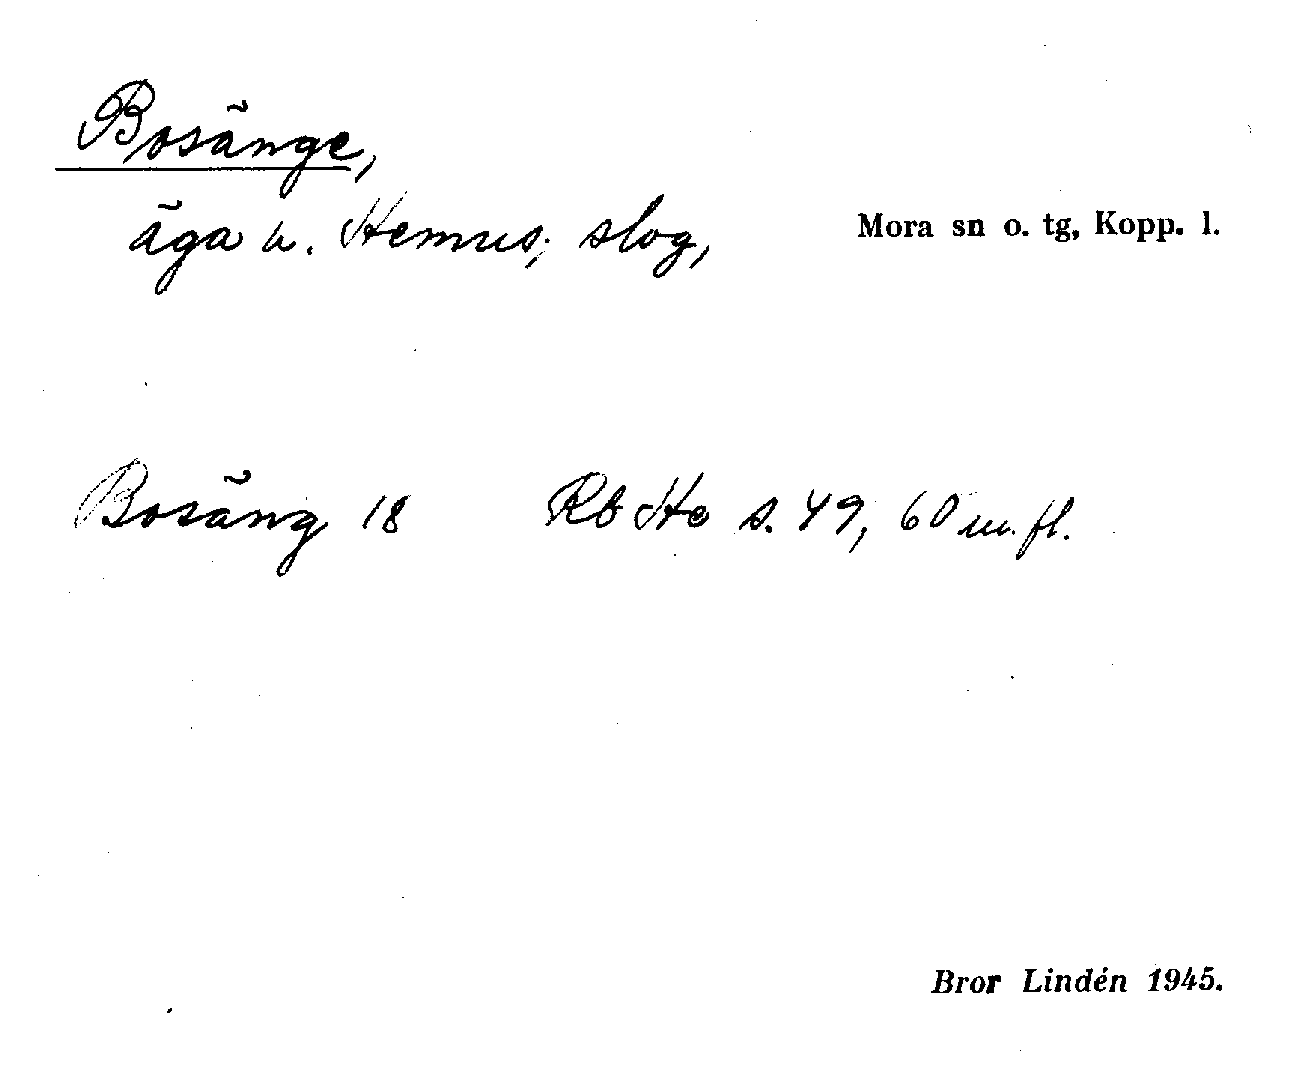 Bosänge,
äga u. Hemus; slog,
Mora sn o. tg, Kopp. l.
Bosäng 18 Rb He s. 49, 60 m. fl.
Bror Lindén 1945.